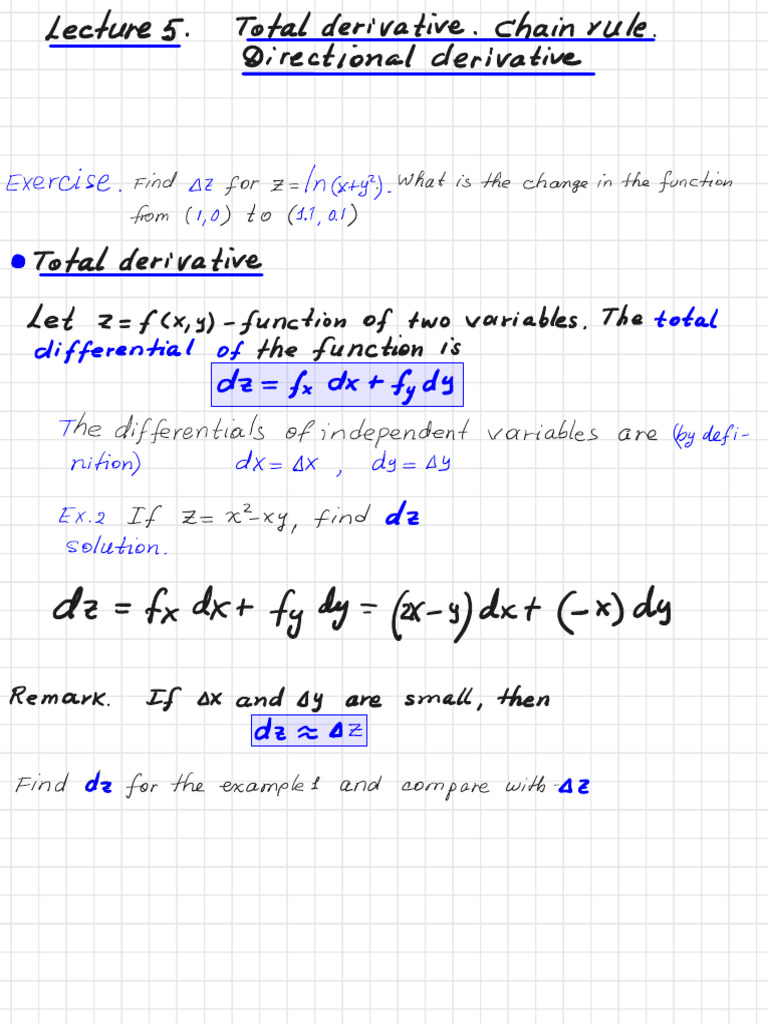 Lecture 5. Total derivative. Chain rule.
Directional derivative
Exercise. Find Δz for z = ln(x+y²). What is the change in the function
from (1,0) to (1.1, 0.1)
• Total derivative
Let z = f(x,y) - function of two variables. The total
differential of the function is
dz = fₓ dx + f_y dy
The differentials of independent variables are (by defi-
nition) dx = Δx , dy = Δy
Ex.2 If z = x² - xy, find dz
solution.
dz = fₓ dx + f_y dy = (2x - y) dx + (-x) dy
Remark. If Δx and Δy are small, then
dz ≈ Δz
Find dz for the example 1 and compare with Δz